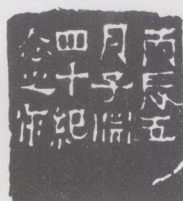 丙辰五
月子淵
四十紀
念之作